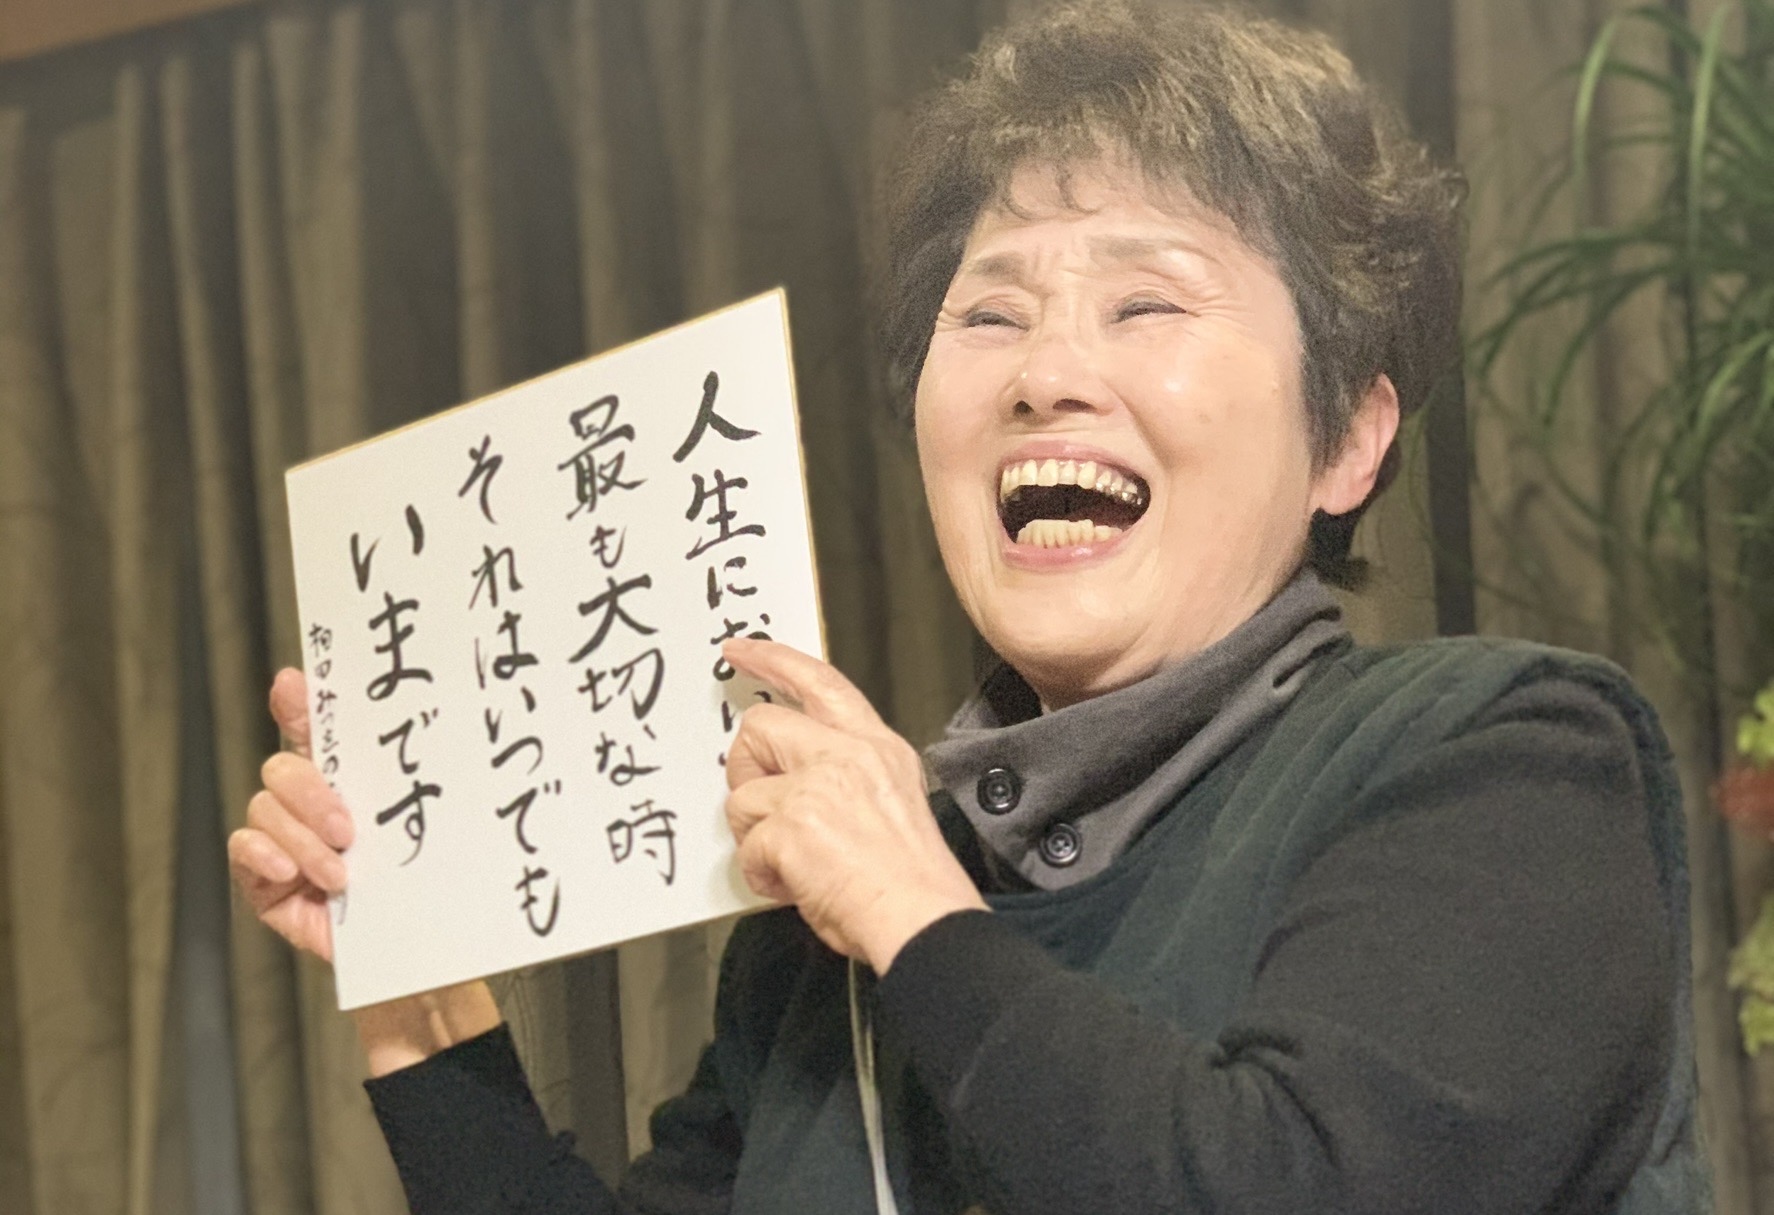 人生において
最も大切な時
それはいつでも
いまです
相田みつを